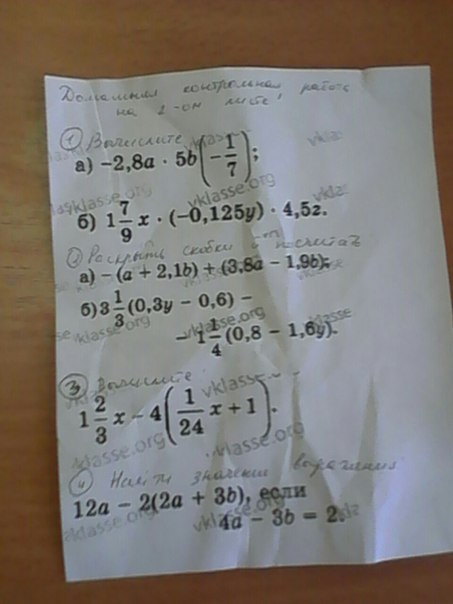 Домашняя контрольная работа
на 2-ом листе!
① Вычислите
а) −2,8a · 5b(−1/7);
б) 1 7/9 x · (−0,125y) · 4,5z.
② Раскрыть скобки и посчитать
а) −(a + 2,1b) + (3,8a − 1,9b);
б) 3 1/3 (0,3y − 0,6) −
− 1 1/4 (0,8 − 1,6y).
③ Вычислите
1 2/3 x − 4(1/24 x + 1).
④ Найти значение выражения
12a − 2(2a + 3b), если
4a − 3b = 2.
vklasse.org